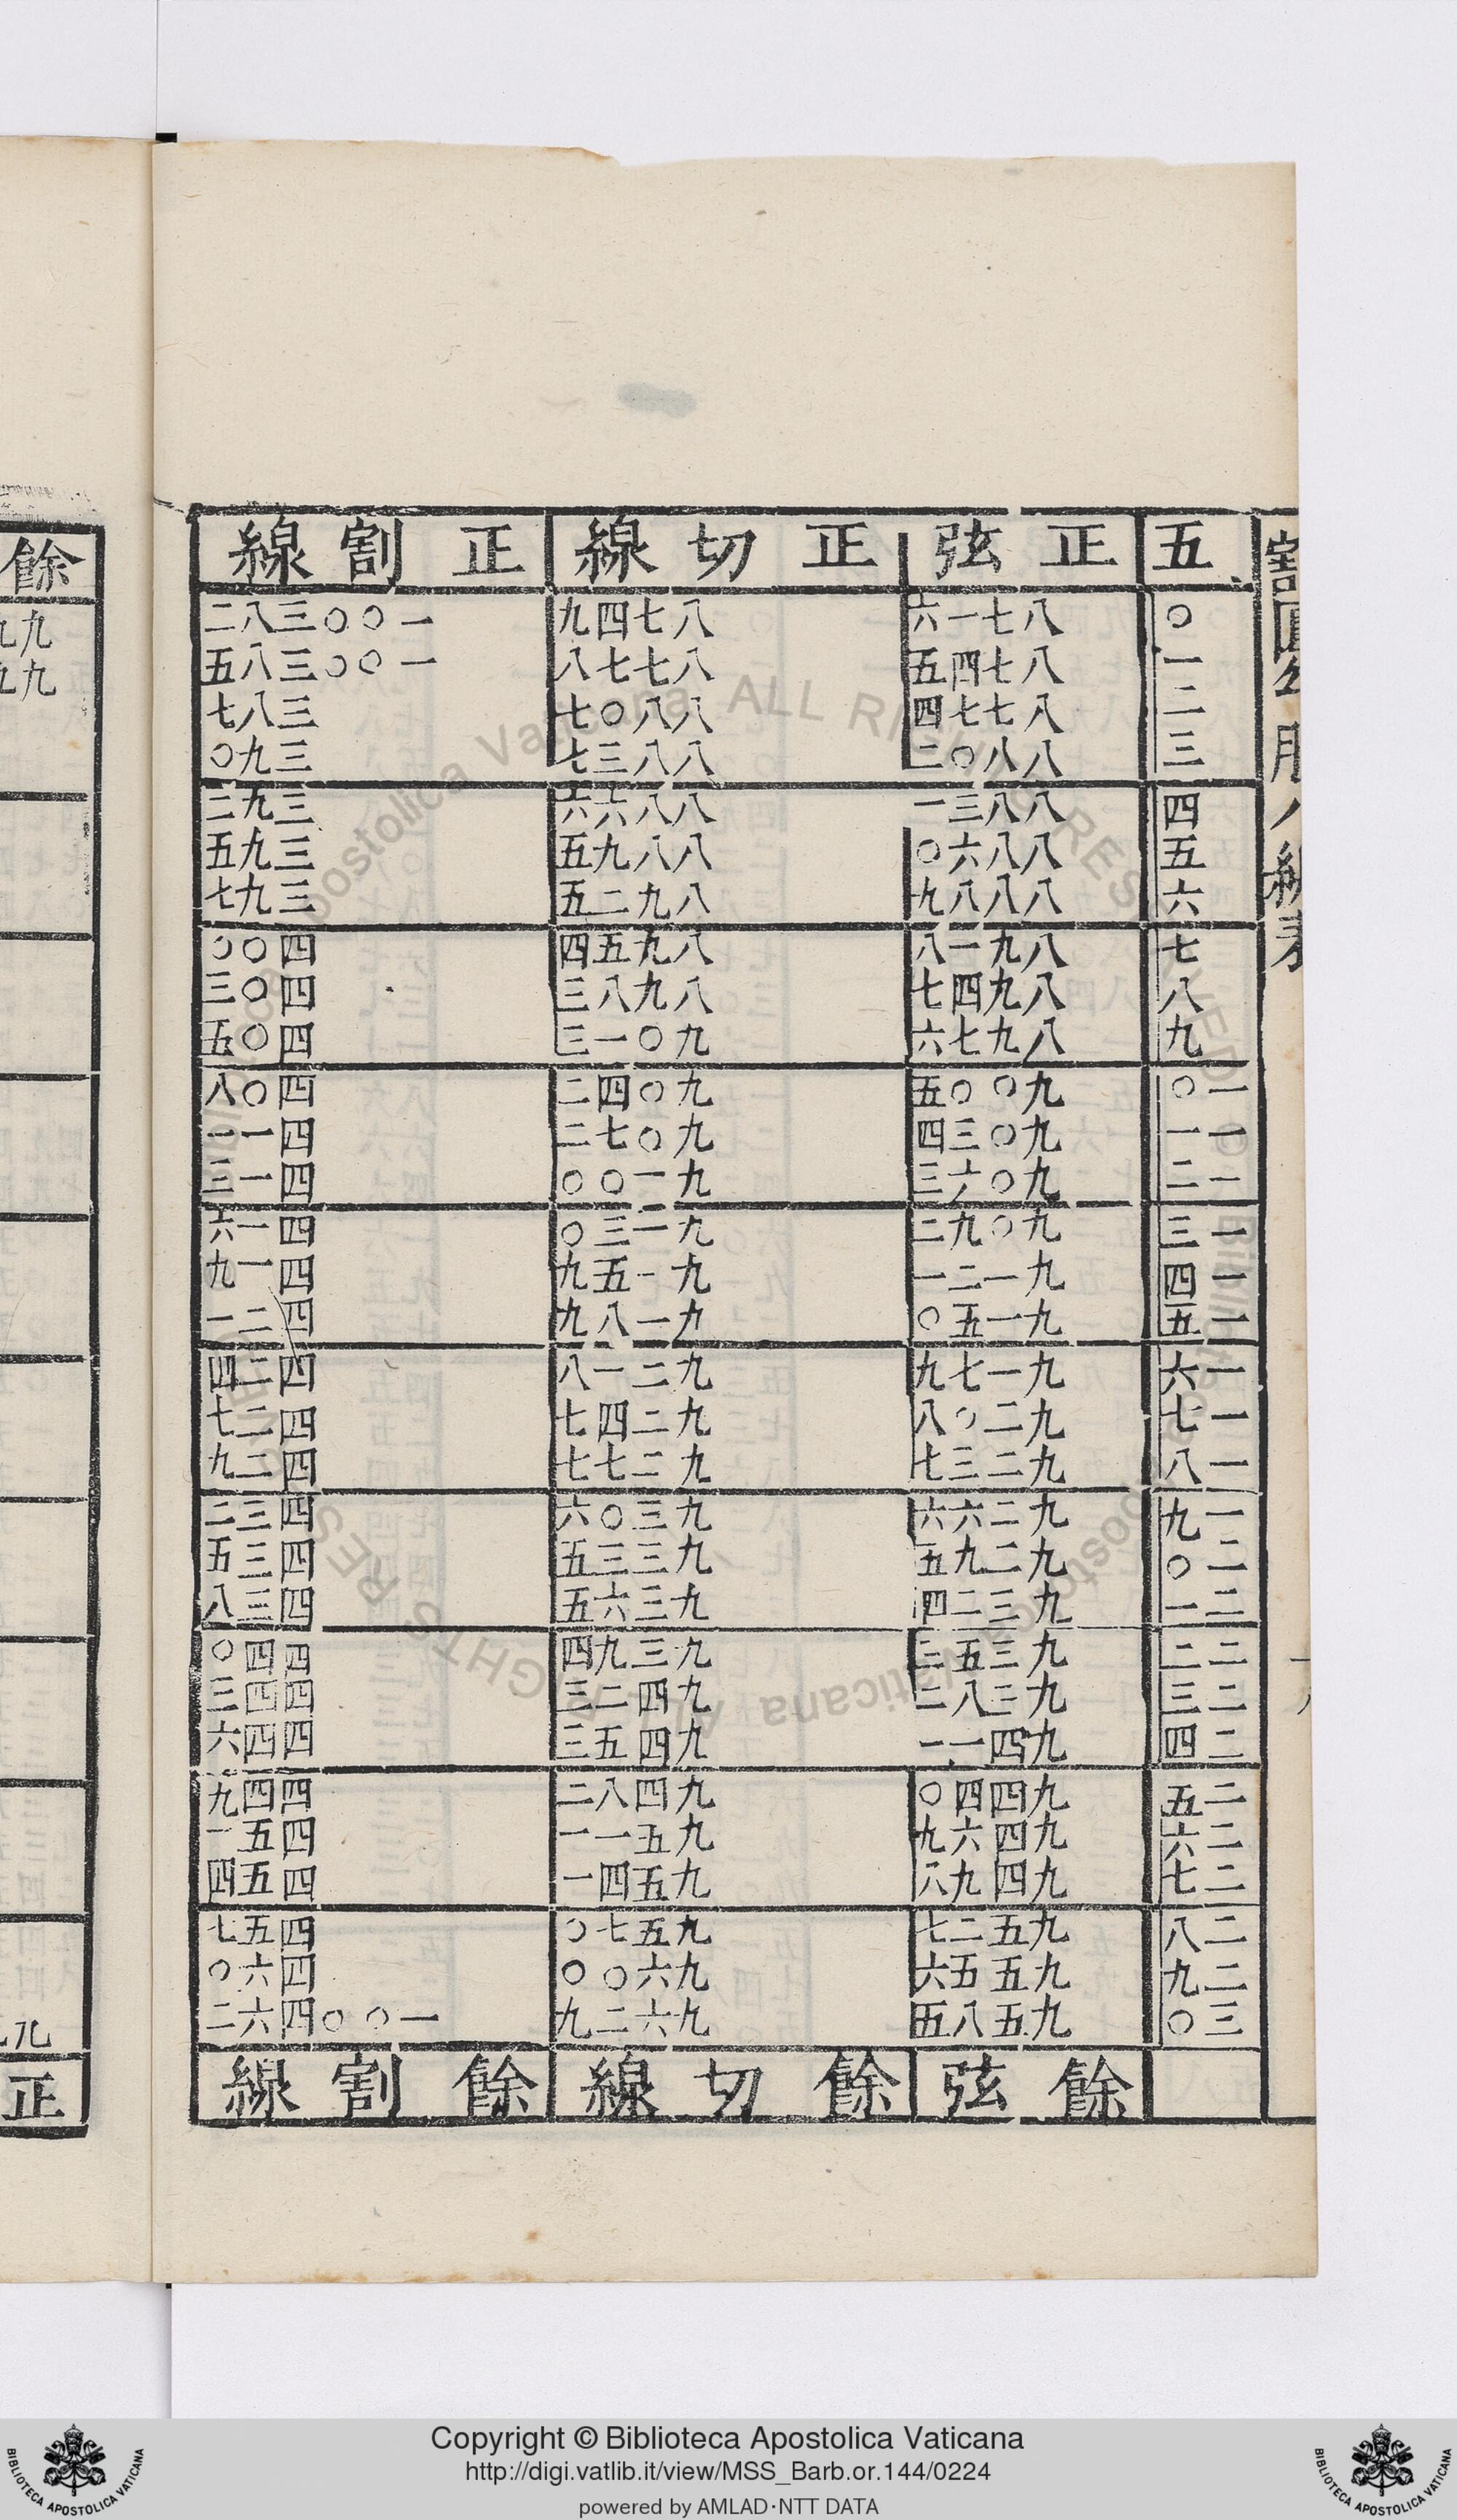 五 正弦 正切線 正割線
〇 八七一六 八七四九 一〇〇三八二
一 八七四五 八七七八 一〇〇三八五
二 八七七四 八八〇七 三八七
三 八八〇二 八八三七 三九〇
四 八八三一 八八六六 三九二
五 八八六〇 八八九五 三九五
六 八八八九 八九二五 三九七
七 八九一八 八九五四 四〇〇
八 八九四七 八九八三 四〇三
九 八九七六 九〇一三 四〇五
一〇 九〇〇五 九〇四二 四〇八
一一 九〇三四 九〇七二 四一一
一二 九〇六三 九一〇〇 四一三
一三 九〇九二 九一三〇 四一六
一四 九一二一 九一五九 四一九
一五 九一五〇 九一八九 四二一
一六 九一七九 九二一八 四二四
一七 九二〇八 九二四七 四二七
一八 九二三七 九二七七 四二九
一九 九二六六 九三〇六 四三二
二〇 九二九五 九三三五 四三五
二一 九三二四 九三六五 四三八
二二 九三五三 九三九四 四四〇
二三 九三八二 九四二三 四四三
二四 九四一一 九四五三 四四六
二五 九四四〇 九四八二 四四九
二六 九四六九 九五一一 四五一
二七 九四九八 九五四一 四五四
二八 九五二七 九五七〇 四五七
二九 九五五六 九六〇〇 四六〇
三〇 九五八五 九六二九 一〇〇四六二
餘弦 餘切線 餘割線
餘
九九
九九
正
Copyright © Biblioteca Apostolica Vaticana
http://digi.vatlib.it/view/MSS_Barb.or.144/0224
powered by AMLAD·NTT DATA
BIBLIOTECA APOSTOLICA VATICANA
BIBLIOTECA APOSTOLICA VATICANA